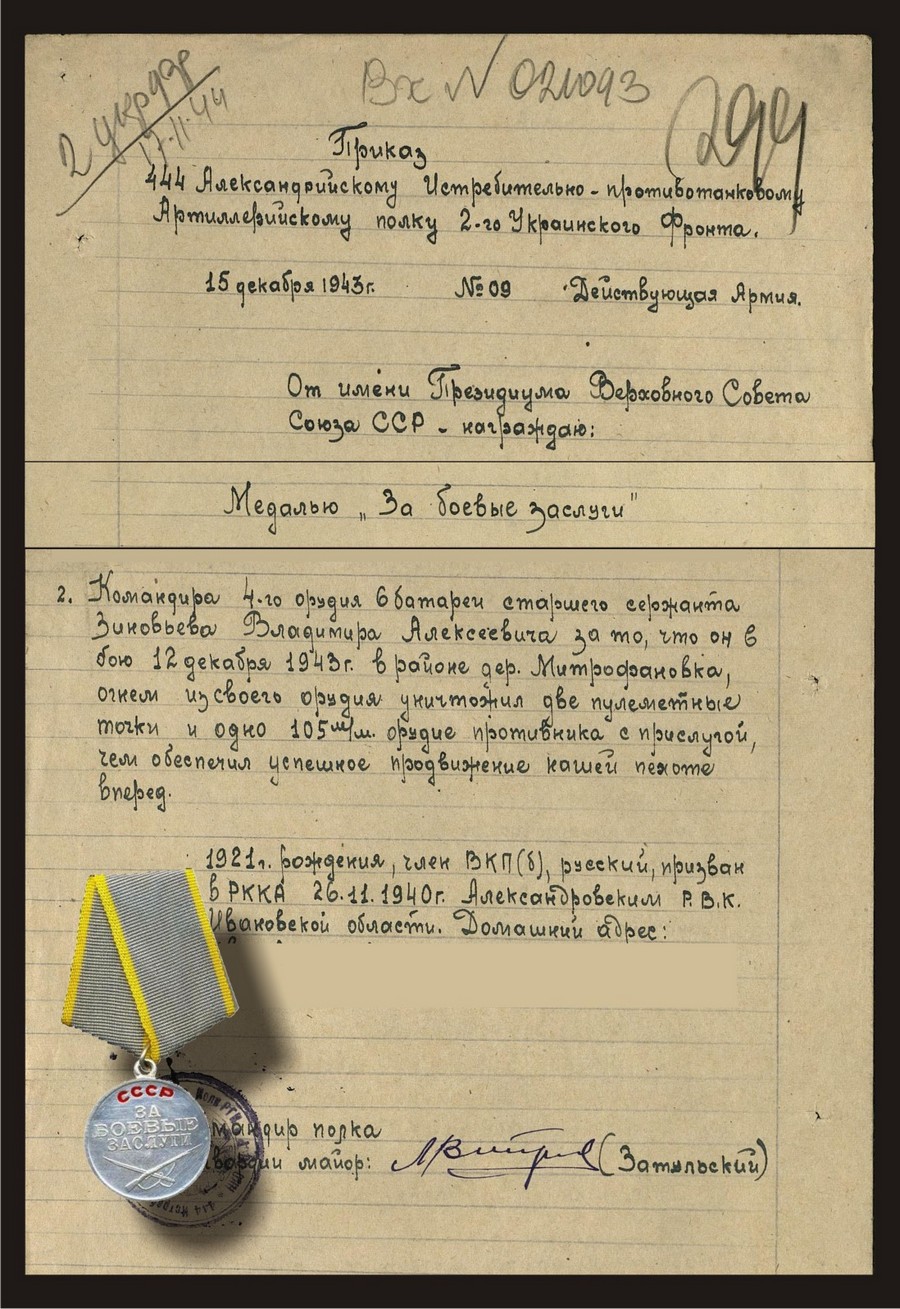 2 укр 93г
17-11-44
Вх N 021093
299
Приказ
444 Александрийскому Истребительно-противотанковому
Артиллерийскому полку 2-го Украинского Фронта.
15 декабря 1943г. №09 Действующая Армия.
От имени Президиума Верховного Совета
Союза ССР - награждаю:
Медалью „За боевые заслуги"
2. Командира 4-го орудия 6 батареи старшего сержанта
Зиновьева Владимира Алексеевича за то, что он в
бою 12 декабря 1943г. в районе дер. Митрофановка,
огнем из своего орудия уничтожил две пулеметные
точки и одно 105 м/м. орудие противника с прислугой,
чем обеспечил успешное продвижение нашей пехоте
вперед.
1921г. рождения, член ВКП(б), русский, призван
в РККА 26.11.1940г. Александровским Р.В.К.
Ивановской области. Домашний адрес:
СССР
ЗА
БОЕВЫЕ
ЗАСЛУГИ
мандир полка
вардии майор: (Затульский)